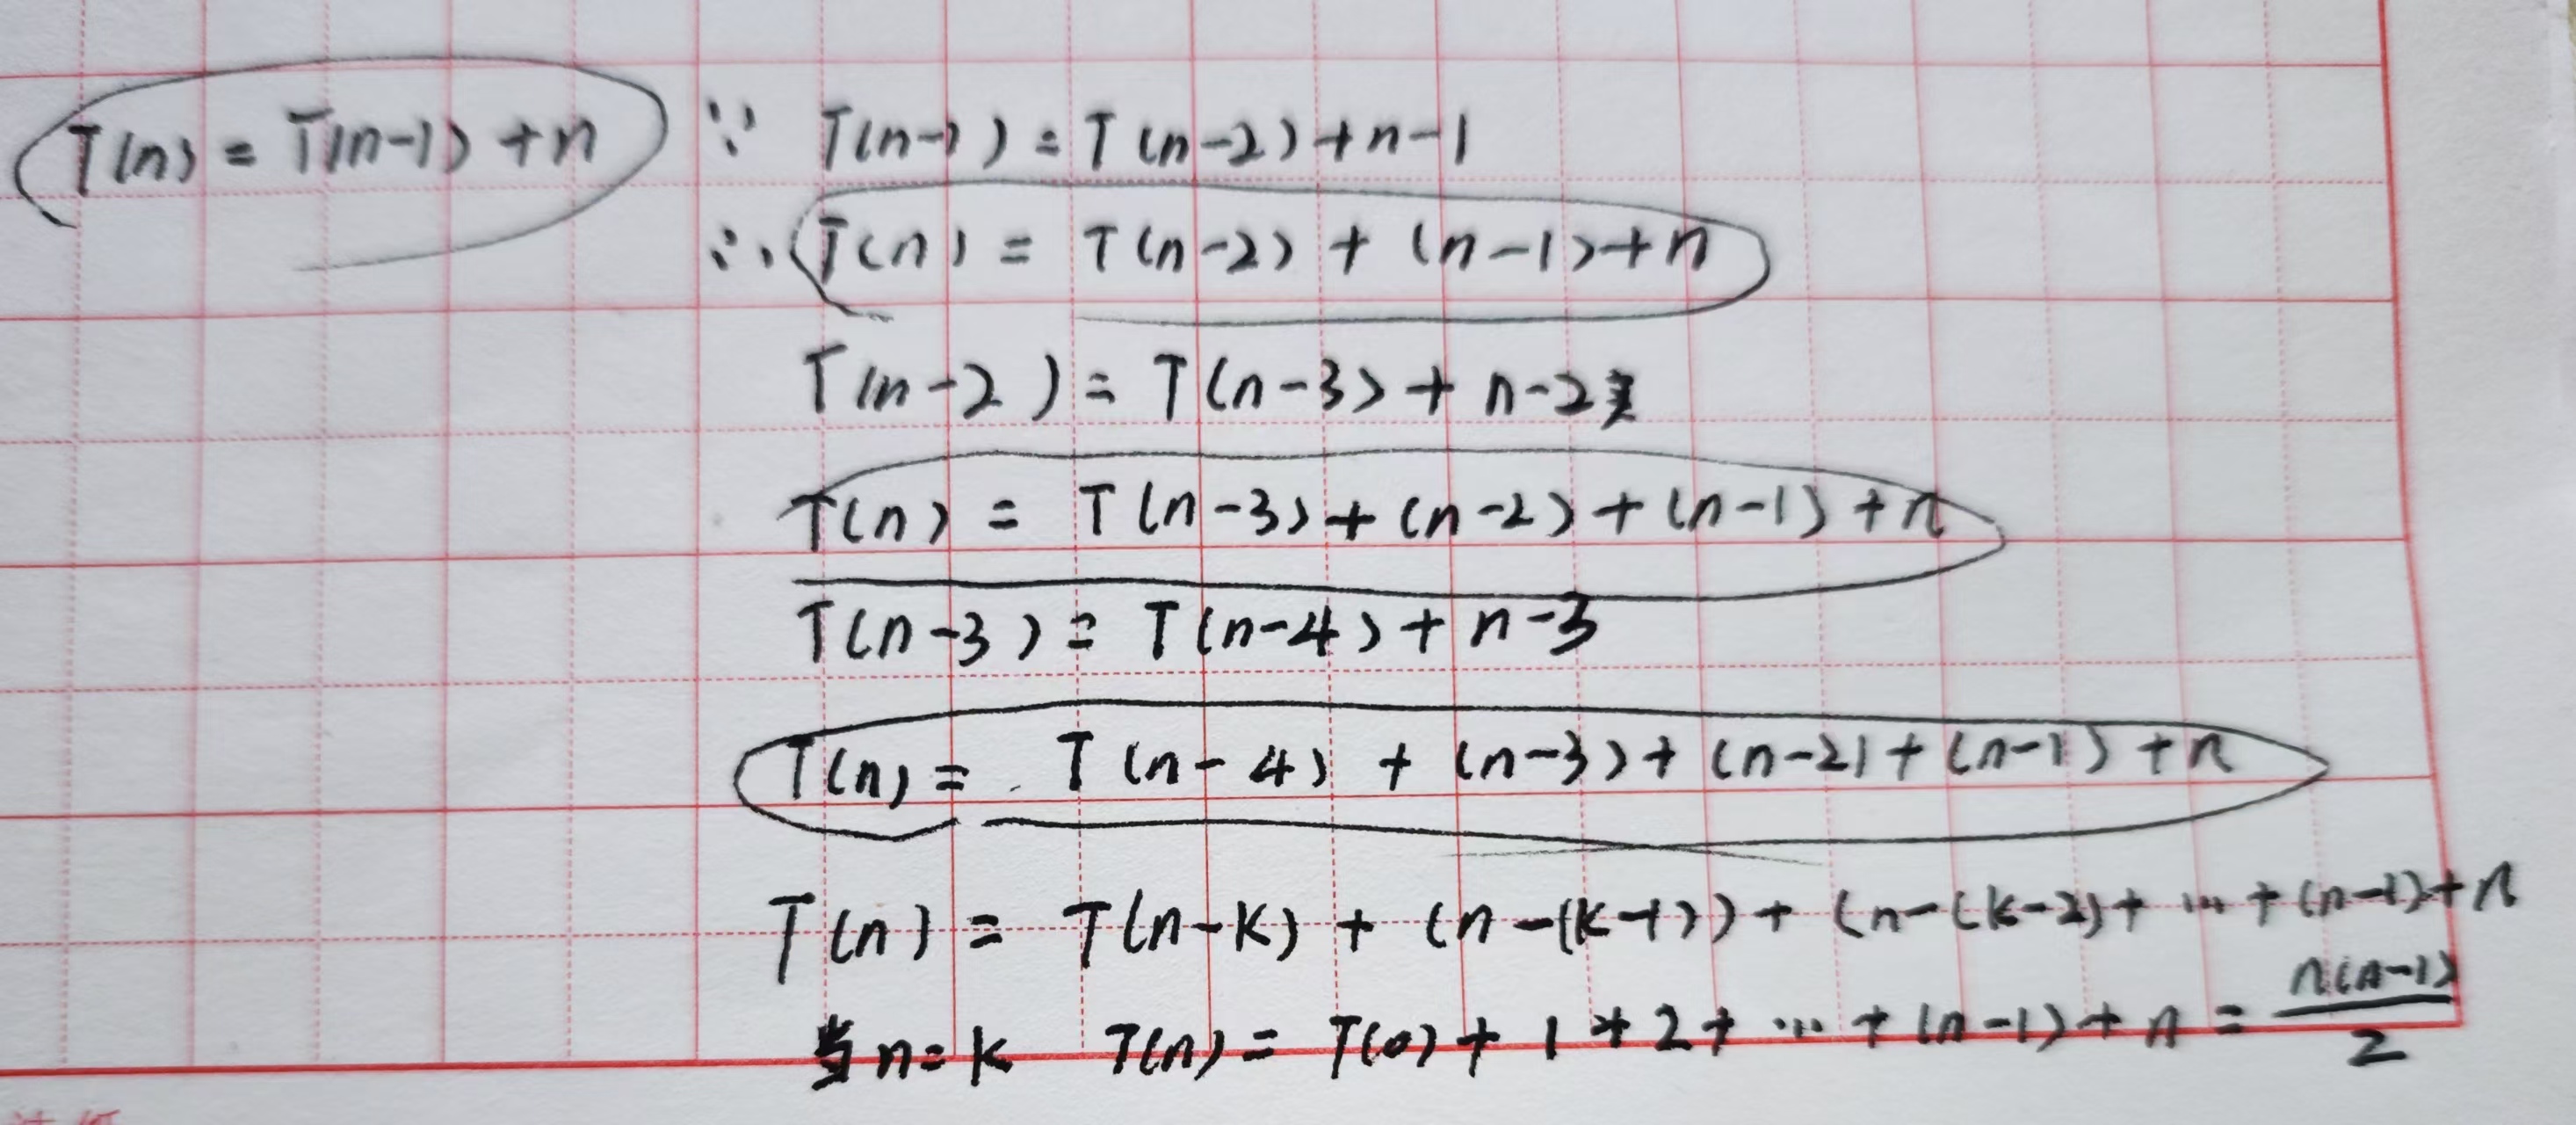 T(n) = T(n-1) + n ∵ T(n-1) = T(n-2) + n-1
∴ T(n) = T(n-2) + (n-1) + n
T(n-2) = T(n-3) + n-2
T(n) = T(n-3) + (n-2) + (n-1) + n
T(n-3) = T(n-4) + n-3
T(n) = T(n-4) + (n-3) + (n-2) + (n-1) + n
T(n) = T(n-k) + (n-(k-1)) + (n-(k-2) + ... + (n-1) + n
当 n=k T(n) = T(0) + 1 + 2 + ... + (n-1) + n = n(n-1)/2